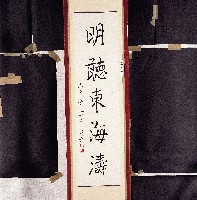 明聽東海濤